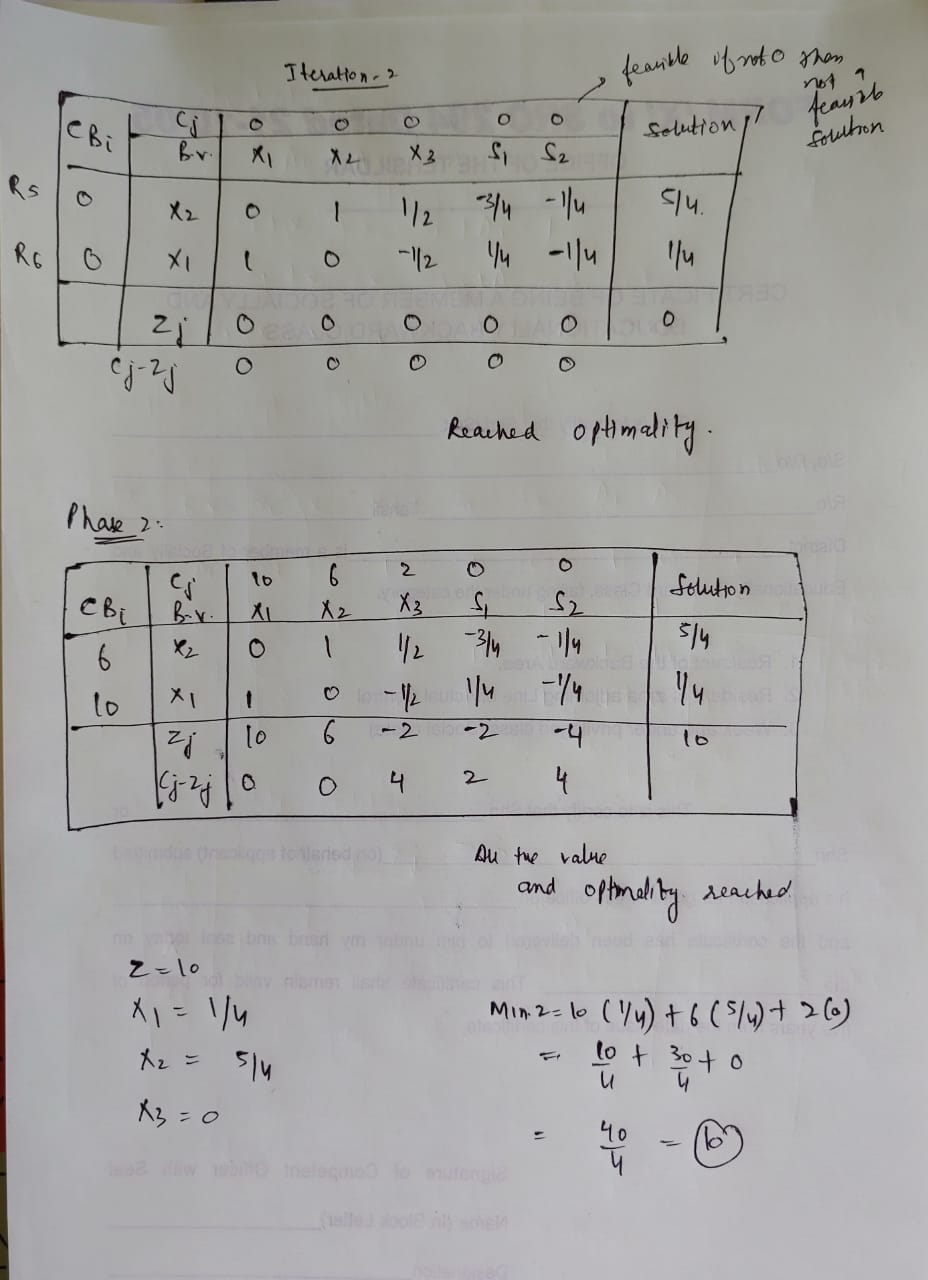 Iteration-2
feasible if not 0 then
not a
feasib
solution
CBi Cj 0 0 0 0 0 Solution
B.v. X1 X2 X3 S1 S2
R5 0 X2 0 1 1/2 -3/4 -1/4 5/4.
R6 0 X1 1 0 -1/2 1/4 -1/4 1/4
Zj 0 0 0 0 0 0
Cj-Zj 0 0 0 0 0
Reached optimality.
Phase 2:
CBi Cj 10 6 2 0 0 Solution
B.v. X1 X2 X3 S1 S2
6 X2 0 1 1/2 -3/4 -1/4 5/4
10 X1 1 0 -1/2 1/4 -1/4 1/4
Zj 10 6 -2 -2 -4 10
Cj-Zj 0 0 4 2 4
All +ve value
and optimality reached
Z=10
X1 = 1/4
X2 = 5/4
X3 = 0
Min.Z = 10 (1/4) + 6 (5/4) + 2(0)
= 10/4 + 30/4 + 0
= 40/4 = 10